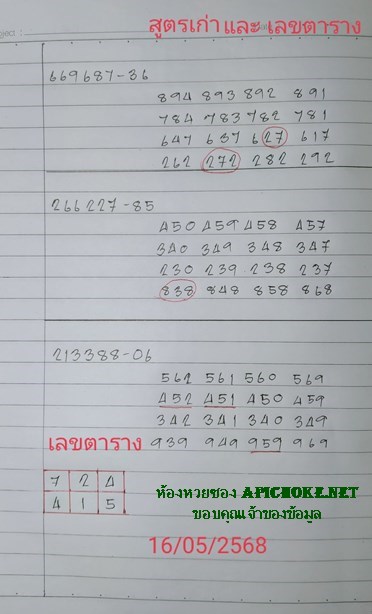 สูตรเก่า และ เลขตาราง
669687-36
894 893 892 891
784 783 782 781
647 637 627 617
262 272 282 292
266227-85
450 459 458 457
340 349 348 347
230 239 238 237
838 848 858 868
213388-06
562 561 560 569
452 451 450 459
342 341 340 349
เลขตาราง 939 949 959 969
7 2 4
4 1 5
ห้องหวยซอง APICHOKE.NET
ขอบคุณเจ้าของข้อมูล
16/05/2568